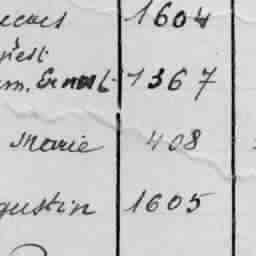 1604
m. Ernest 1367
Marie 408
gustin 1605